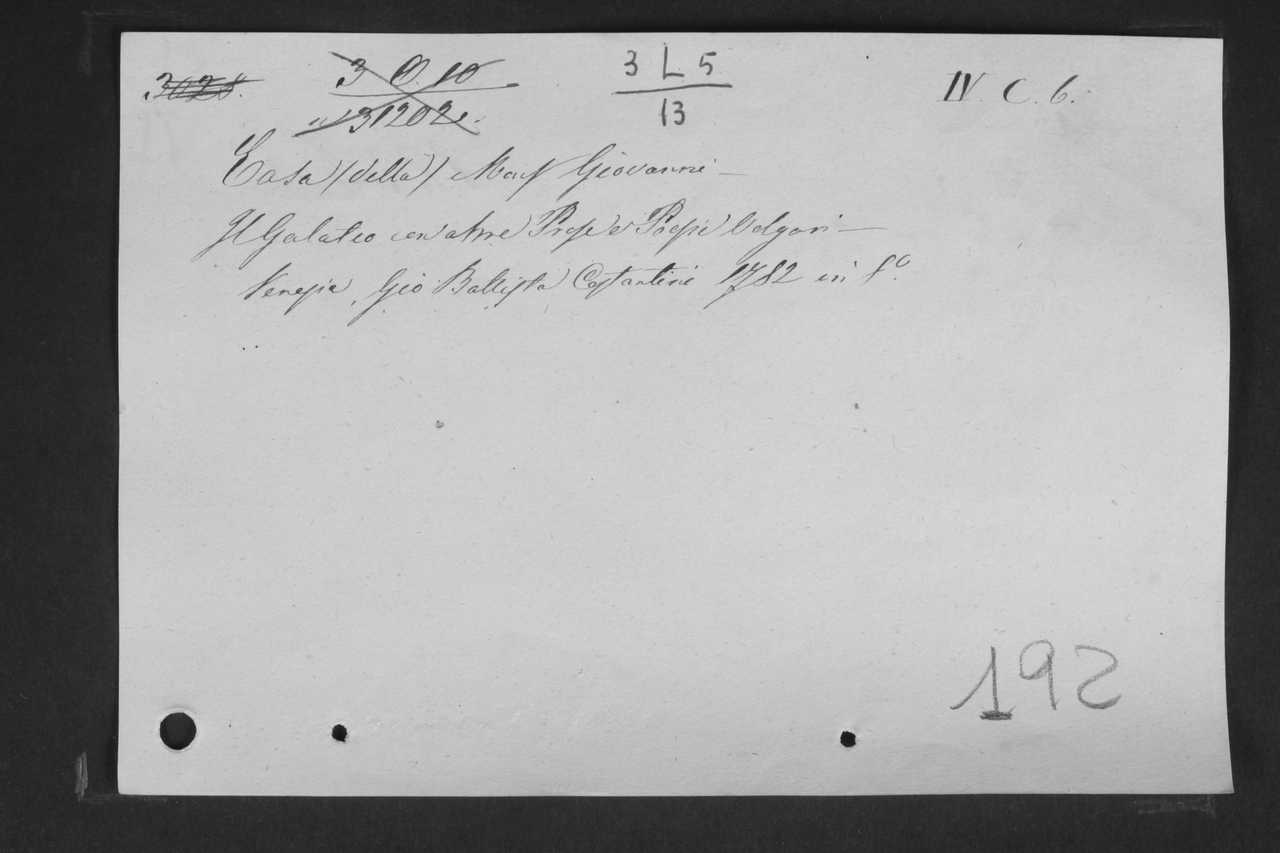 3028. 3 O. 10 3 L 5 IV. C. 6.
131202. 13
Casa (della) Mons Giovanni —
Il Galateo con altre Prose e Poesie Volgari —
Venezia, Gio Battista Costantini 1752 in 8°.
192